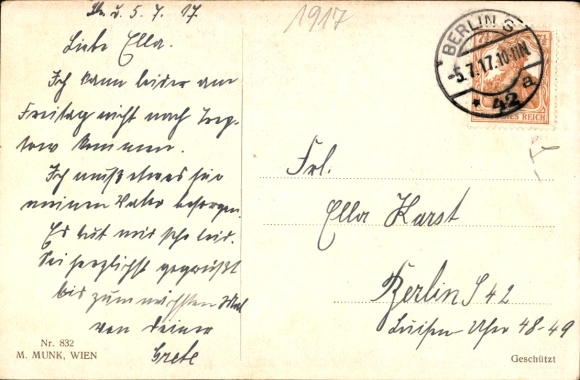 d. 5. 7. 17.
1917
Liebe Ella.
Ich kann leider am
Freitag nicht nach Trep-
tow kommen.
Ich muß etwas für
meinen Vater besorgen.
Es tut mir sehr leid.
Sei herzlichst gegrüßt
bis zum nächsten Mal
von deiner
Grete
Nr. 832
M. MUNK, WIEN
BERLIN S
-5.7.17.10-11N
* 42 a
7½
7½
REICH
Frl.
Ella Karst
Berlin S 42
Luisen-Ufer 48-49
Geschützt